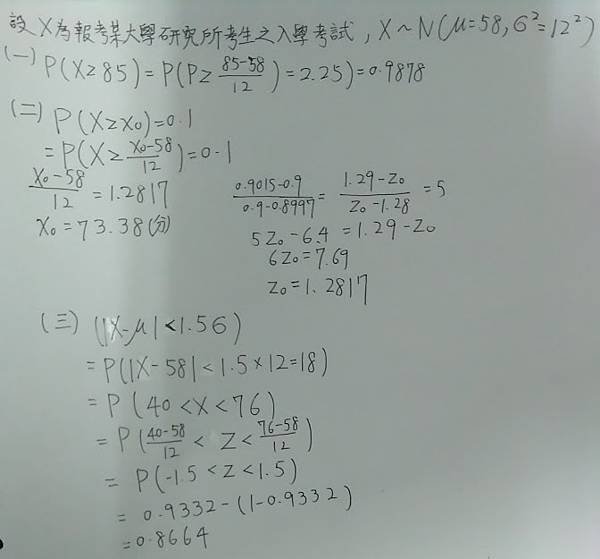 設X為報考某大學研究所考生之入學考試, X~N(μ=58, 6²=12²)
(一) P(X≥85)=P(P≥(85-58)/12)=2.25)=0.9878
(二) P(X≥X₀)=0.1
=P(X≥(X₀-58)/12)=0.1
(X₀-58)/12=1.2817
X₀=73.38(分)
(0.9015-0.9)/(0.9-0.8997)=(1.29-Z₀)/(Z₀-1.28)=5
5Z₀-6.4=1.29-Z₀
6Z₀=7.69
Z₀=1.2817
(三) (|X-μ|<1.56)
=P(|X-58|<1.5×12=18)
=P(40<X<76)
=P((40-58)/12<Z<(76-58)/12)
=P(-1.5<Z<1.5)
=0.9332-(1-0.9332)
=0.8664